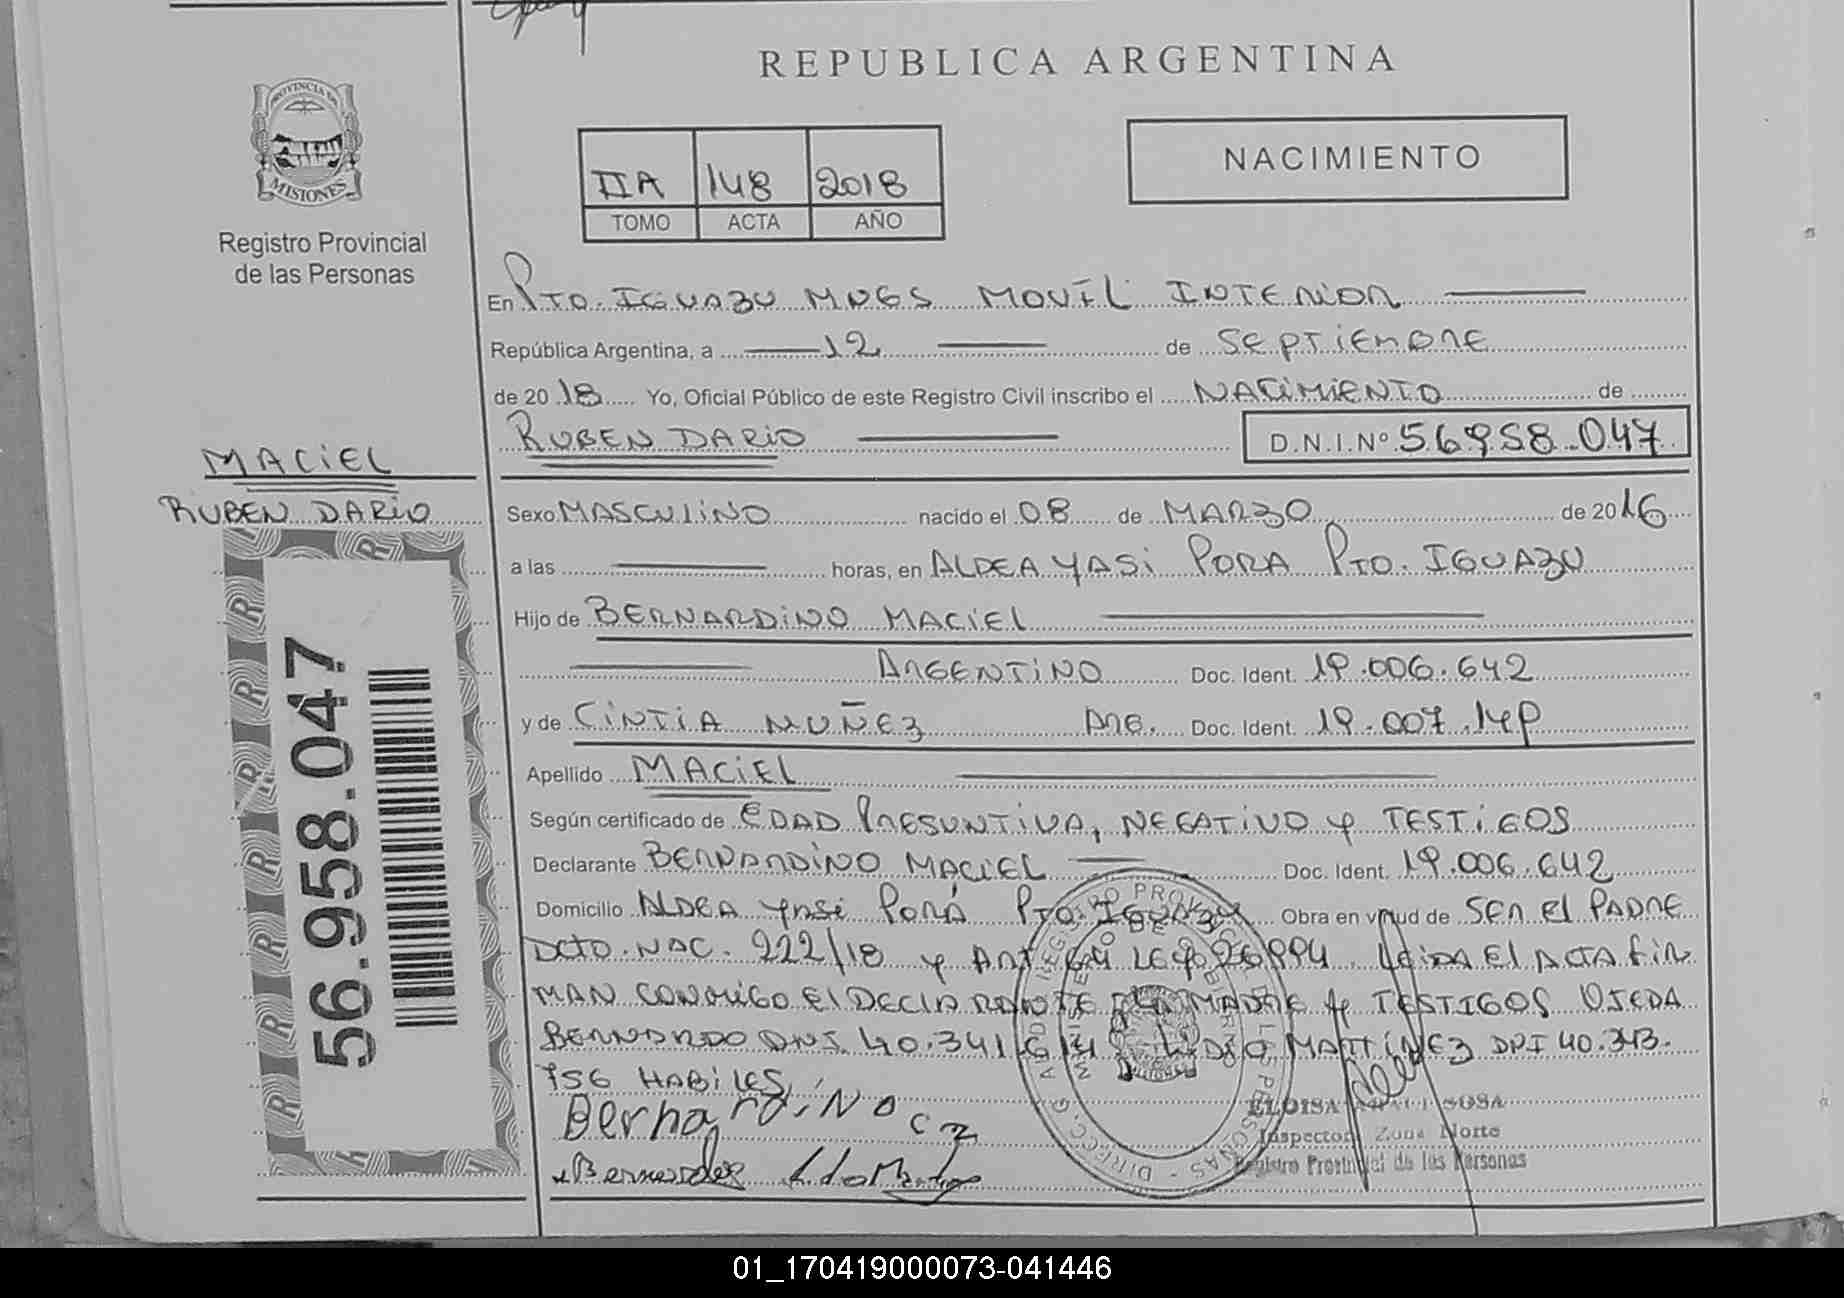 REPUBLICA ARGENTINA
PROVINCIA DE
MISIONES
Registro Provincial
de las Personas
IIA 148 2018
TOMO ACTA AÑO
NACIMIENTO
En Pto. IGUAZU MNES MOVIL INTERIOR
República Argentina, a 12 de SEPTIEMBRE
de 2018 Yo, Oficial Público de este Registro Civil inscribo el NACIMIENTO de
RUBEN DARIO D.N.I.Nº 56958.047
MACIEL
RUBEN DARIO
Sexo MASCULINO nacido el 08 de MARZO de 2016
a las horas, en ALDEA YASI PORA PTO. IGUAZU
Hijo de BERNARDINO MACIEL
ARGENTINO Doc. Ident. 19.006.642
y de CINTIA NUÑEZ ARG. Doc. Ident. 19.007.149
Apellido MACIEL
Según certificado de EDAD PRESUNTIVA, NEGATIVO y TESTIGOS
Declarante BERNARDINO MACIEL Doc. Ident. 19.006.642
Domicilio ALDEA YASI PORÁ PTO. IGUAZU Obra en virtud de SER El PADRE
DCTO. NAC. 222/18 y ART 64 LEY 26994. LEIDA El ACTA FIR
MAN CONMIGO El DECLARANTE LA MADRE y TESTIGOS OJEDA
BERNARDO DNI. 40.341 LIDIO MARTÍNEZ DNI 40.343.
756 HABILES
BernardiNo
56.958.047
ELOISA SOSA
Inspector Zona Norte
Registro Provincial de las Personas
01_170419000073-041446